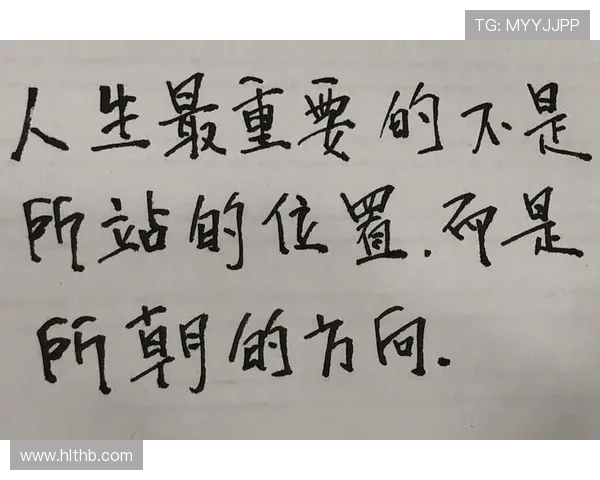 TG: MYYJJPP
人生最重要的不是
所站的位置.而是
所朝的方向.
www.hlthb.com